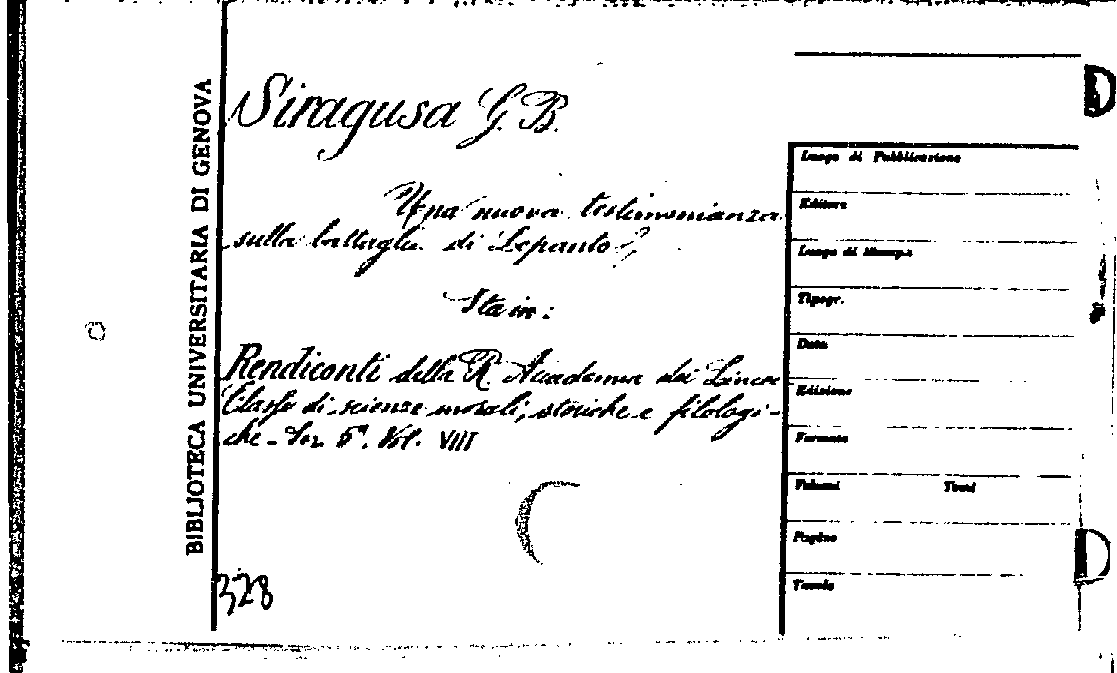 BIBLIOTECA UNIVERSITARIA DI GENOVA
Siragusa G. B.
Una nuova testimonianza
sulla battaglia di Lepanto?
Sta in:
Rendiconti della R. Accademia dei Lincei
Classe di scienze morali, storiche e filologi-
che - Ser. 5ª. Vol. VIII
328
Luogo di Pubblicazione
Editore
Luogo di Stampa
Tipogr.
Data
Edizione
Formato
Volumi Tomi
Pagine
Tavole